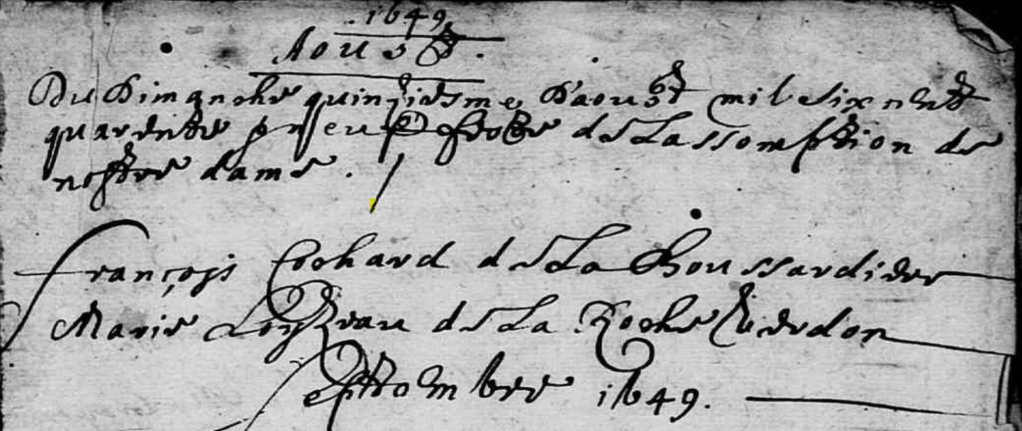 .1649.
Aoust.
Du Dimanche quinziesme D'aoust mil six centz
quarente neuf feste de L'assomption de
nostre dame.
François Cochard de La Boussardiere
Marie Loyzeau de La Roche
Septembre 1649.